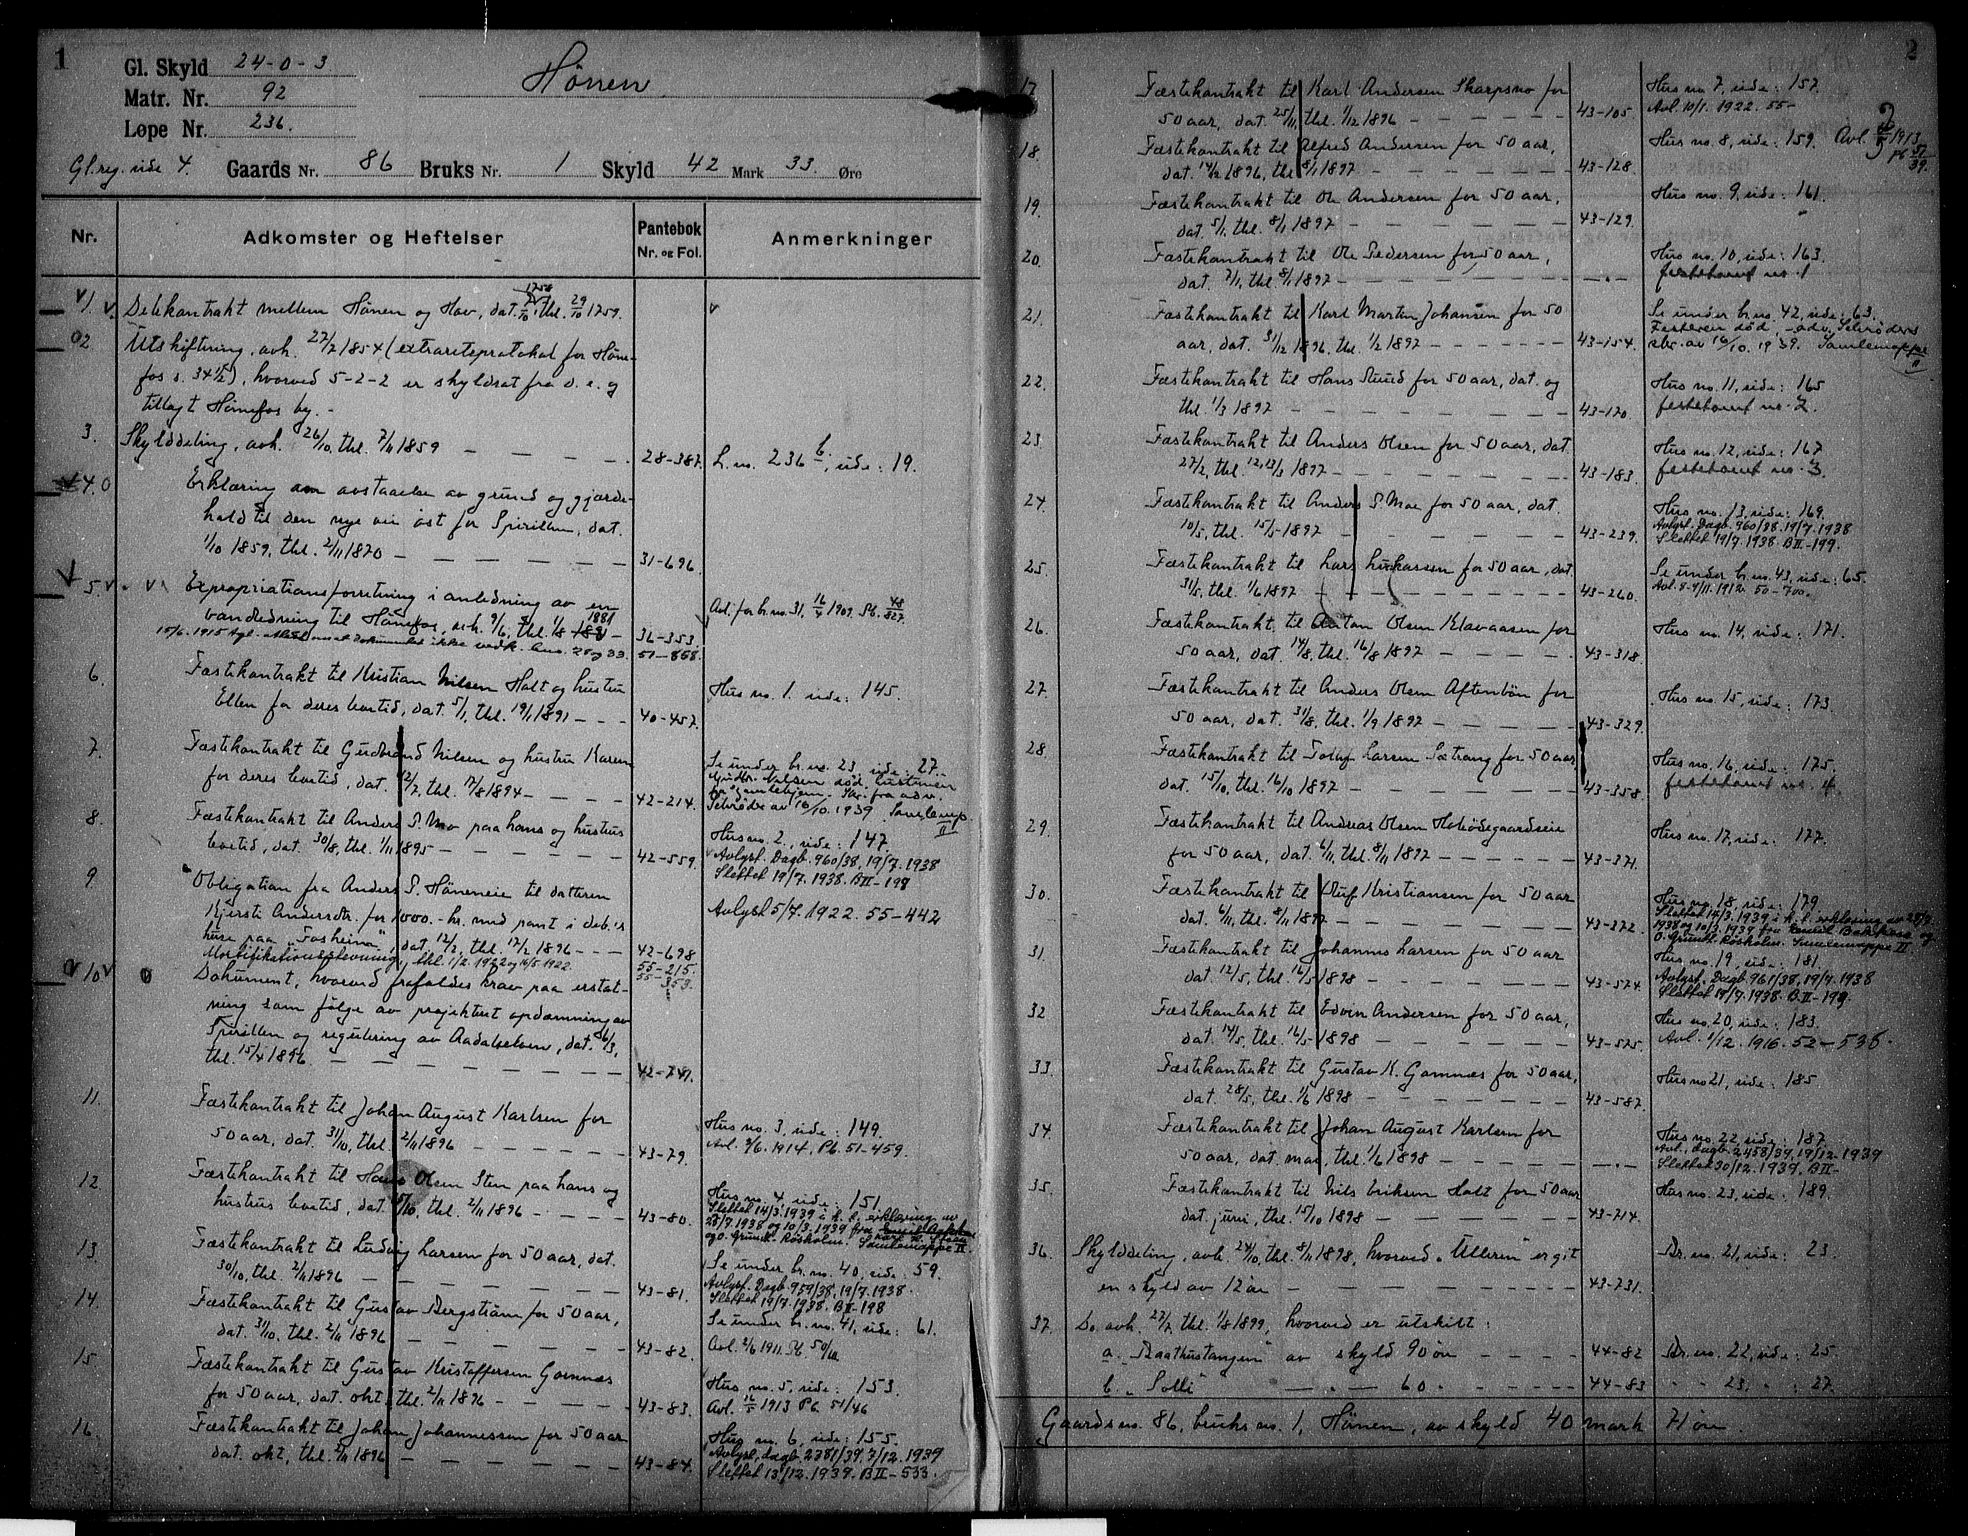 1
Gl. Skyld 24-0-3
Hønen
Matr. Nr. 92
Løpe Nr. 236.
Gl. reg. side 4. Gaards Nr. 86 Bruks Nr. 1 Skyld 42 Mark 33. Øre
Nr. Adkomster og Heftelser Pantebok Nr. og Fol. Anmerkninger
1. Delekontrakt mellem Hønen og Hov, dat. thl. 29/10 1759.
2 Utskiftning, avh. 27/7 1854 (extraretsprotokol for Høne-
fos s. 34½), hvorved 5-2-2 er skyldsat fra d. e. og
tillagt Hønefos by. -
3. Skylddeling, avh. 26/10, thl. 7/11 1859 28-387. L. no. 236 b, side: 19.
4. Erklæring om avstaaelse av grund og gjærde-
hold til den nye vei øst for Spirillen, dat.
1/10 1859, thl. 2/11 1870 31-696.
5. Expropriationsforretning i anledning av en Avl. for br. no. 31, 16/4 1909. Pb. 48/327.
vandledning til Hønefos, avh. 9/6, thl. 1/8 1881 36-353.
15/6. 1915 Agl. ikke vedk. 51-858.
6. Fæstekontrakt til Kristian Nilsen Holt og hustru Hus no. 1. side: 145.
Ellen for deres levetid, dat. 5/1, thl. 19/1 1891 40-457.
7. Fæstekontrakt til Gudbrand Nilsen og hustru Karen Se under br. no. 23, side: 27.
for deres levetid, dat. 12/7, thl. 17/8 1894 42-214. Gudbr. Nilsen død, hustruen
på gamlehjem. Skr. fra adv.
Schrøder av 16/10. 1939 Samlemp. II
8. Fæstekontrakt til Anders P. Mo paa hans og hustrus Hus no. 2, side: 147.
levetid, dat. 30/8, thl. 1/11 1895 42-559. Avlyst. Dagb. 960/38, 19/7. 1938
Slettet 19/7. 1938. B II-199
9. Obligation fra Anders P. Høneneie til datteren Avlyst 5/7. 1922. 55-442
Kjersti Andersdtr. for 1000.- kr. med pant i deb.s
huse paa "Fosheim", dat. 12/2, thl. 17/2 1896 42-698
Mortifikationsstevning, thl. 1/2. 1922 og 16/5 1922. 55-215. 55-353.
10 Dokument, hvorved frafaldes krav paa erstat-
ning som følge av projektert opdæmning av
Spirillen og regulering av Aadalselven, dat. 26/3,
thl. 15/4 1896 42-747.
11. Fæstekontrakt til Johan August Karlsen for Hus no. 3, side: 149.
50 aar, dat. 31/10, thl. 2/11 1896 43-79. Avl. 9/6. 1914, Pb. 51-459.
12. Fæstekontrakt til Hans Olsen Sten paa hans og Hus no. 4, side: 151.
hustrus levetid, dat. 5/10, thl. 2/11 1896 43-80. Slettet 14/3. 1939 i h. t. erklæring av
28/7. 1938 og 10/3. 1939 fra
og O. Grundt-Roskolm. Samlemappe II.
13. Fæstekontrakt til Ludvig Larsen for 50 aar, dat. Se under br. no. 40, side: 59.
30/10, thl. 2/11 1896 43-81. Avlyst. Dagb. 959/38, 19/7. 1938.
Slettet 19/7. 1938. B II-198
14. Fæstekontrakt til Gustav Bergstrøm for 50 aar, Se under br. no. 41, side: 61.
dat. 31/10, thl. 2/11 1896 43-82. Avl. 2/6 1911. Pb. 50/
15 Fæstekontrakt til Gustav Kristoffersen Gomnæs Hus no. 5, side: 153.
for 50 aar, dat. okt., thl. 2/11 1896 43-83. Avl. 16/5 1913 Pb. 51/46
16. Fæstekontrakt til Johan Johannessen for 50 aar Hus no. 6, side: 155.
dat. okt, thl. 2/11 1896 43-84. Avlyst, dagb. 2381/39. 7/12. 1939
Slettet 13/12. 1939. B II-533.
2
17 Fæstekontrakt til Karl Andersen Skarpsno for Hus no. 7, side: 157.
50 aar, dat. 25/11, thl. 1/12 1896 43-105. Avl. 10/1. 1922. 55-
18. Fæstekontrakt til Alfred Andersen for 50 aar, Hus no. 8, side: 159. Avl. 1913
dat. 14/12 1896, thl. 8/1 1897 43-128.
19. Fæstekontrakt til Ole Andersen for 50 aar, Hus no. 9, side: 161.
dat. 5/1, thl. 8/1 1897 43-129.
20. Fæstekontrakt til Ole Pedersen for 50 aar, Hus no. 10, side: 163.
dat. 7/1, thl. 8/1 1897 festetomt nr. 1
21. Fæstekontrakt til Karl Martin Johansen for 50 Se under br. no. 42, side: 63.
aar, dat. 31/12 1896, thl. 1/2 1897 43-154. Festeren død, - adv. Schrøders
skr. av 16/10. 1939. Samlemappe II
22. Fæstekontrakt til Hans Ruud for 50 aar, dat. og Hus no. 11, side: 165
thl. 1/3 1897 43-170. festetomt nr. 2.
23 Fæstekontrakt til Anders Olsen for 50 aar, dat. Hus no. 12, side: 167
27/2, thl. 12,13/3 1897 43-183. festetomt nr. 3.
24. Fæstekontrakt til Anders P. Moe for 50 aar, dat. Hus no. 13, side: 169.
10/5, thl. 15/5 1897 43-239. Avlyst. Dagb. 960/38. 19/7. 1938
Slettet 19/7. 1938. B II-199.
25. Fæstekontrakt til Lars Lukassen for 50 aar, dat. Se under br. no. 43, side: 65.
31/5, thl. 1/6 1897 43-260. Avl. 5-9/11. 1912. 50-700.
26. Fæstekontrakt til Anton Olsen Klavaasen for Hus no. 14, side: 171.
50 aar, dat. 14/8, thl. 16/8 1897 43-318.
27. Fæstekontrakt til Anders Olsen Aftenbøn for Hus no. 15, side: 173.
50 aar, dat. 31/8, thl. 1/9 1897 43-329.
28 Fæstekontrakt til Tollef Larsen Sætrang for 50 aar, Hus no. 16, side: 175.
dat. 15/10, thl. 16/10 1897 43-358. festetomt nr. 4.
29. Fæstekontrakt til Andreas Olsen Hobødegaardseie Hus no. 17, side: 177.
for 50 aar, dat. 6/11, thl. 8/11 1897 43-371.
30. Fæstekontrakt til Oluf Kristiansen for 50 aar Hus no. 18 side: 179
dat. 6/11, thl. 8/11 1897 43-372. Slettet 14/3. 1939 i h. t. erklæring av 28/7.
1938 og 10/3. 1939 fra og
O. Grundt-Roskolm. Samlemappe II.
31. Fæstekontrakt til Johannes Larsen for 50 aar Hus no. 19, side: 181.
dat. 12/5, thl. 16/5 1898 43-574. Avlyst. Dagb. 961/38, 19/7. 1938
Slettet 19/7. 1938. B II-199.
32 Fæstekontrakt til Edvin Andersen for 50 aar, Hus no. 20, side: 183.
dat. 14/5, thl. 16/5 1898 43-575. Avl. 1/12. 1916. 52-536.
33. Fæstekontrakt til Gustav K. Gomnæs for 50 aar, Hus no 21, side: 185
dat. 28/5, thl. 1/6 1898 43-587.
34. Fæstekontrakt til Johan August Karlsen for Hus no. 22, side: 187.
50 aar, dat. mai, thl. 1/6 1898 Avl. Dagb. 2458/39, 19/12. 1939
Slettet 30/12. 1939. B II-
35. Fæstekontrakt til Nils Eriksen Holt for 50 aar Hus no. 23, side: 189.
dat. juni, thl. 15/10 1898 43-714.
36. Skylddeling, avh. 24/10, thl. 8/11 1898, hvorved "Ulleren" er git Br. no. 21, side: 23.
en skyld av 12 øre 43-731.
37. Do. avh. 27/7, thl. 1/8 1899, hvorved er utskilt:
a. "Raathustangen" av skyld 90 øre 44-82 Br. no. 22, side: 25.
b. "Solli" 60 44-83 23. 27.
Gaards no. 86, bruks no. 1, Hønen, av skyld 40 mark 71 øre